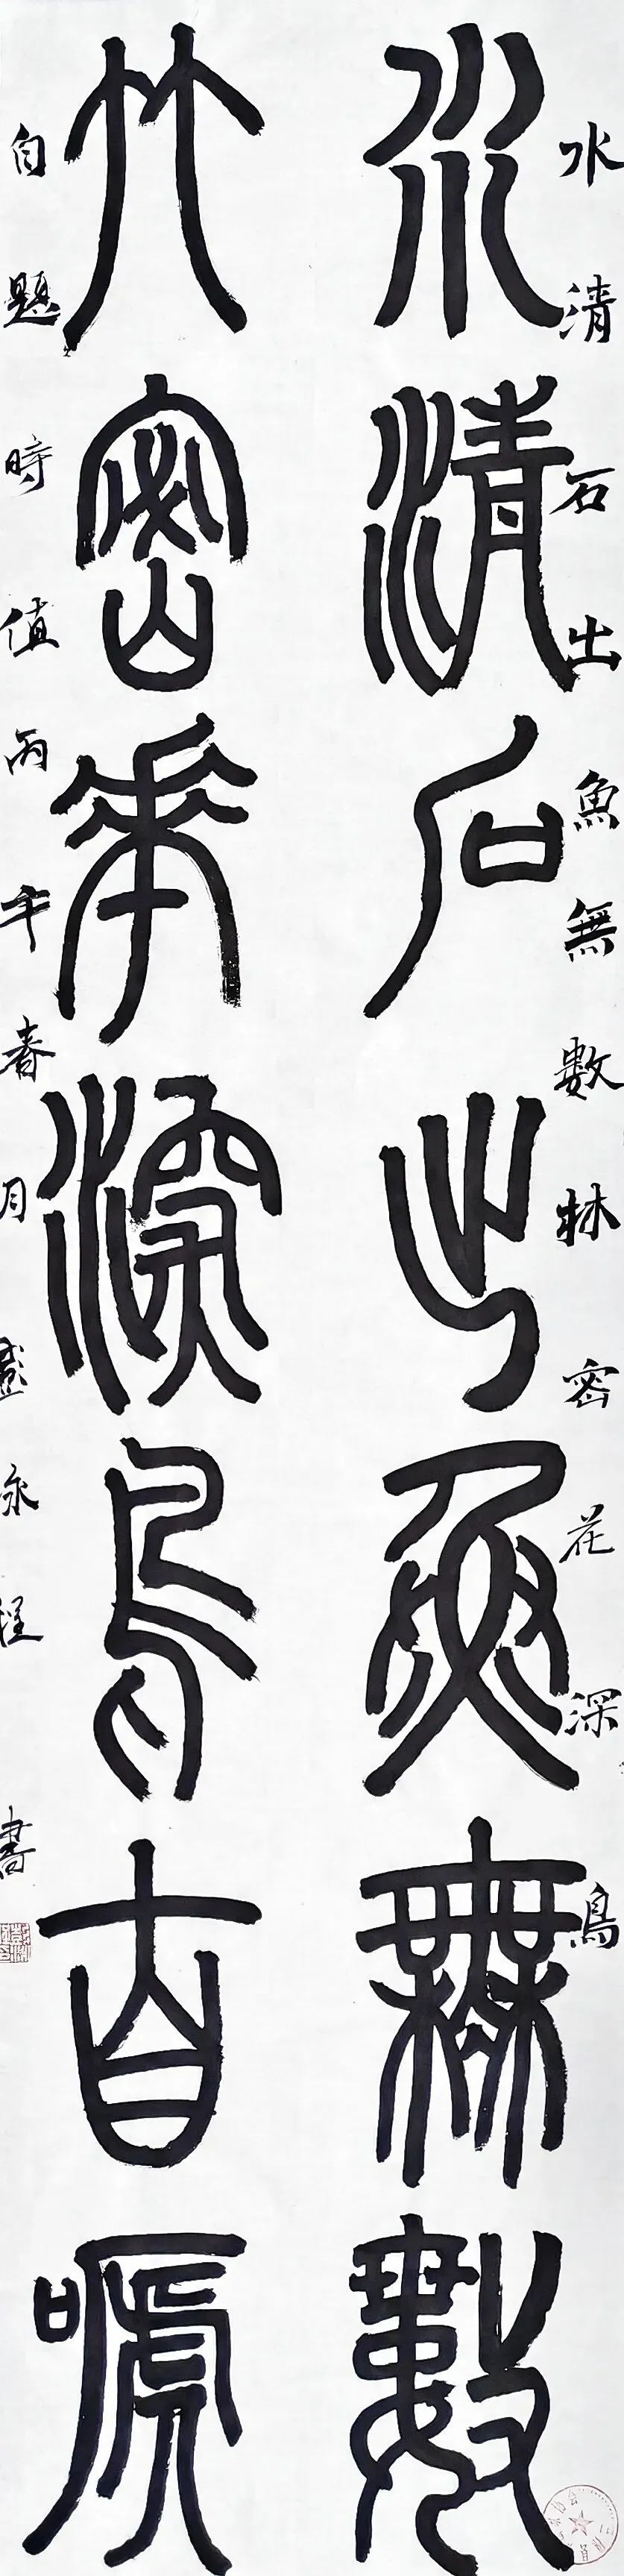 水清石出魚無數林密花深鳥
水清石出魚無數
竹密華深鳥自嗁
自題時值丙午春月盛永程書